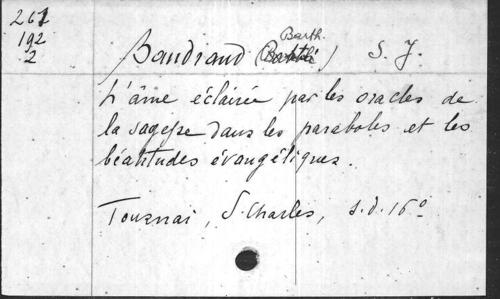 261
192
2
Baudrand (Barth.) S. J.
L'âme éclairée par les oracles de
la sagesse dans les paraboles et les
béatitudes évangéliques.
Tournai, S. Charles, s.d. 16°